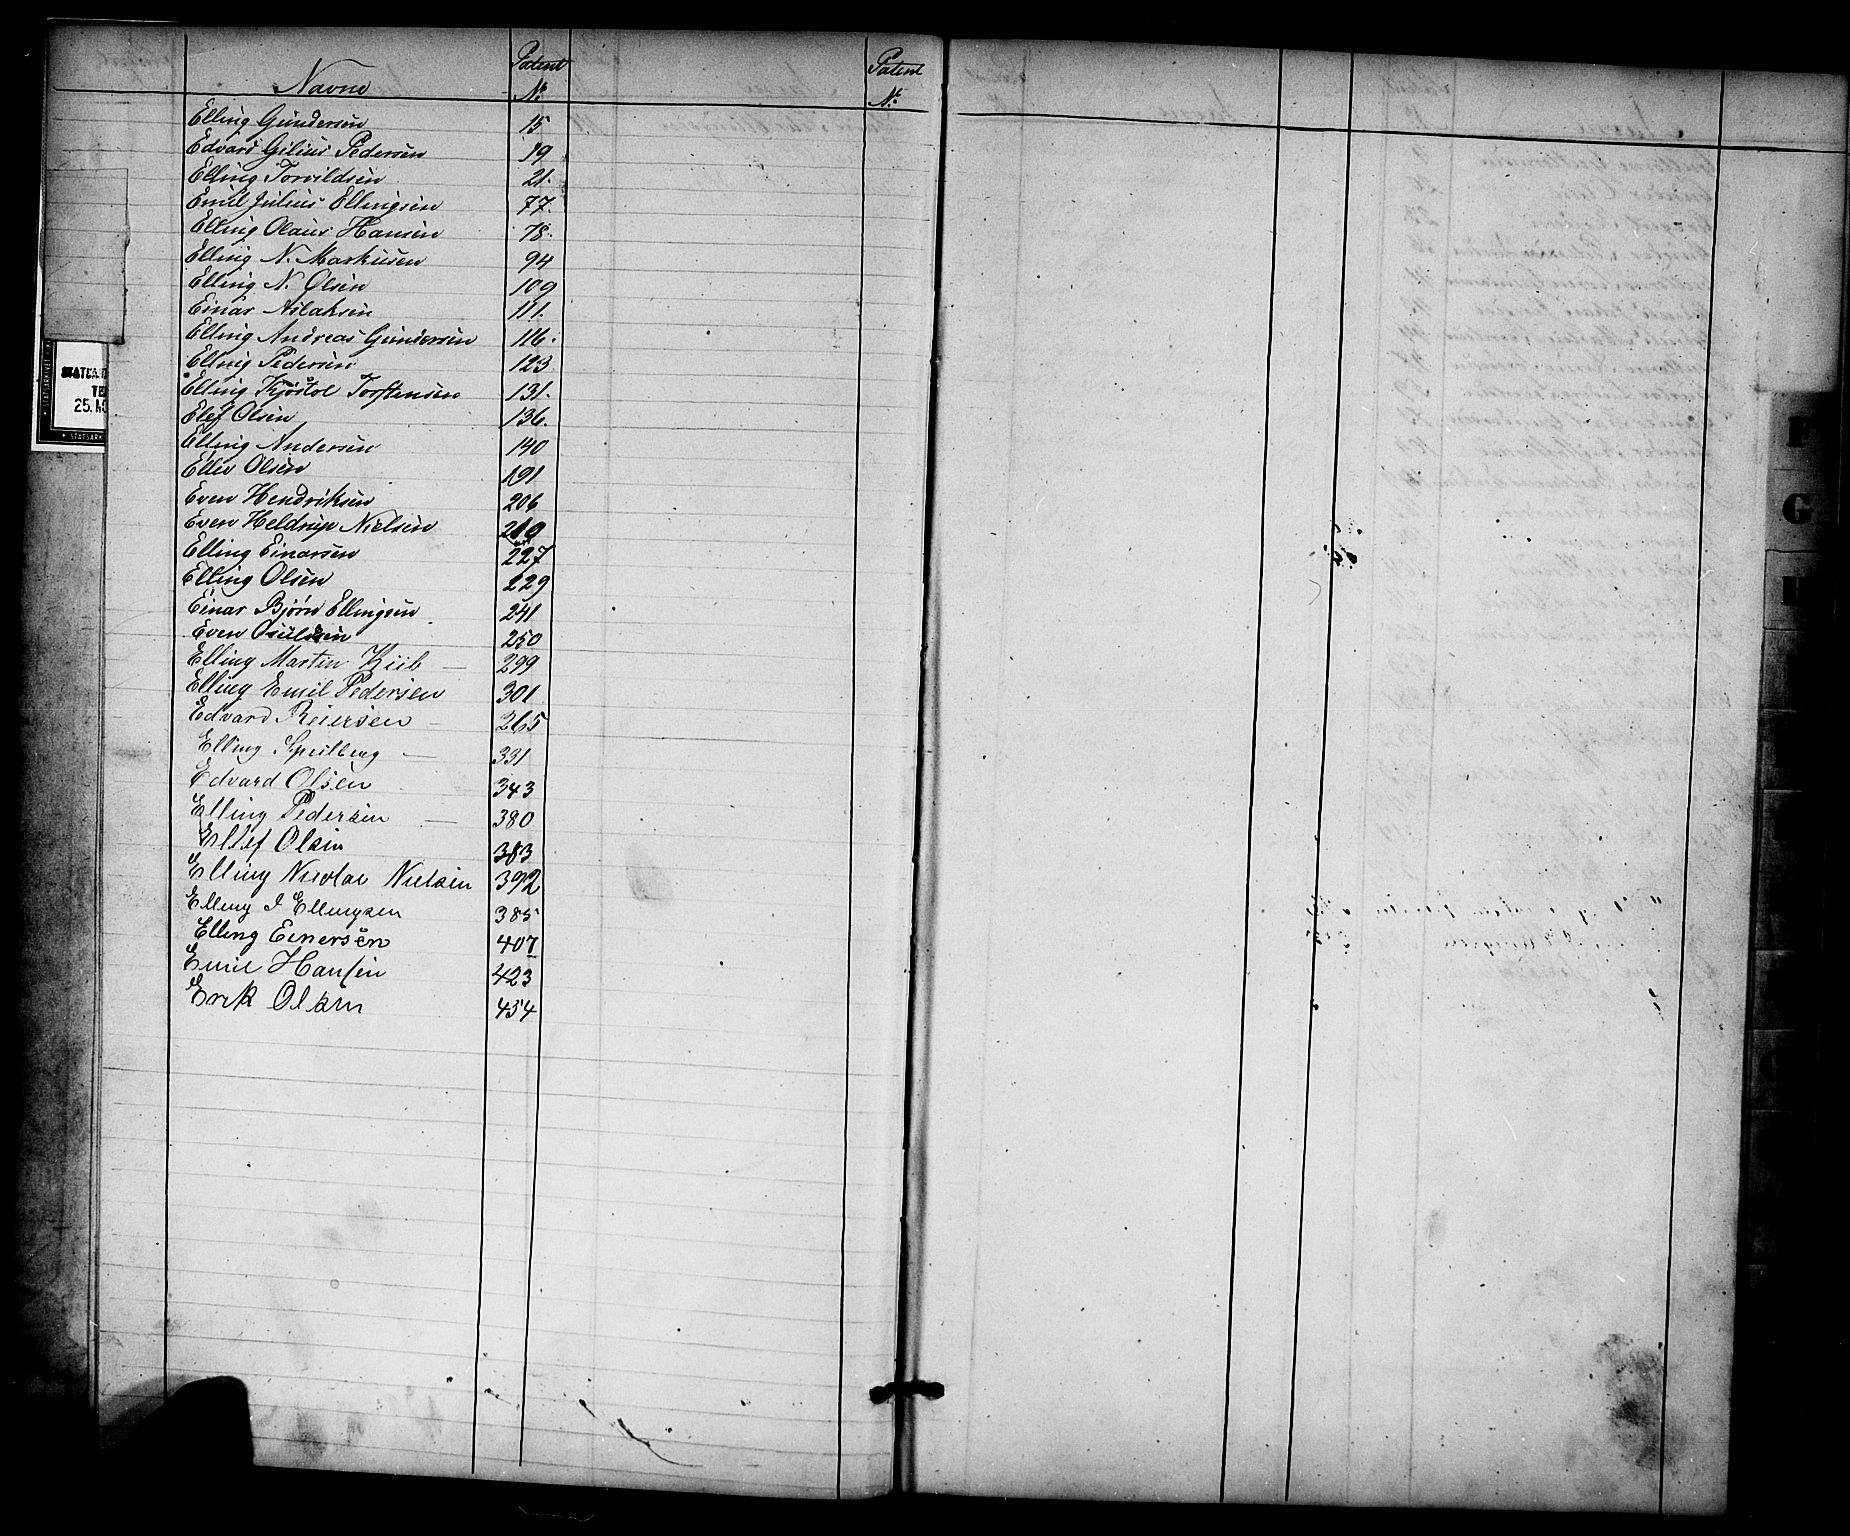 Navne Patent Patent
No. No.
Elling Gundersen 15
Edvard Gilius Pedersen 19
Elling Torvildsen 21.
Emil Julius Ellingsen 77.
Elling Olaus Hansen 78.
Elling N. Markusen 94
Elling N. Olsen 109
Einar Aslaksen 111.
Elling Andreas Gundersen 116.
Elling Pedersen 123
Elling Kjøstol Torstensen 131.
Elef Olsen 136.
Elling Andersen 140
Ellev Olsen 191
Even Hendriksen 206
Even Heldrup Nielsen 219
Elling Einarsen 227
Elling Olsen 229
Einar Bjørn Ellingsen 241
Even Osuldsen 250
Elling Martin Kiil — 299
Elling Emil Pedersen 301
Edvard Reiersen — 265
Elling Speilberg — 331
Edvard Olsen 343
Elling Pedersen — 380
Ellef Olsen 383
Elling Nicolai Nielsen 392
Elling I Ellingsen 385
Elling Einersen 407
Emil Hansen 423
Erik Olsen 454
STATSA
25.
STATSARK
F
G
H